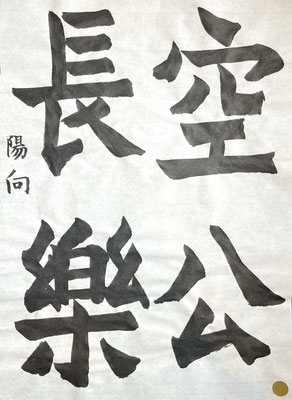 空公
長樂
陽向